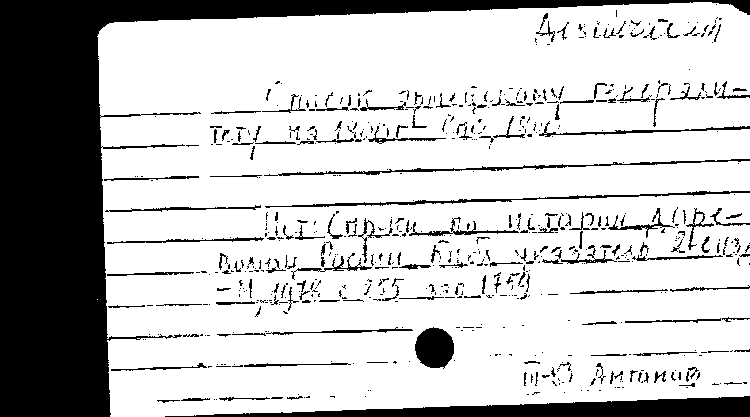 Список армейскому генерали-
тету на 1800 г – Спб, 1800
Ист: Спр-ки по истории дорe-
волюц России Библ указатель 2-е изд
– М, 1978 с 255 № 1759
III-83 Антонов